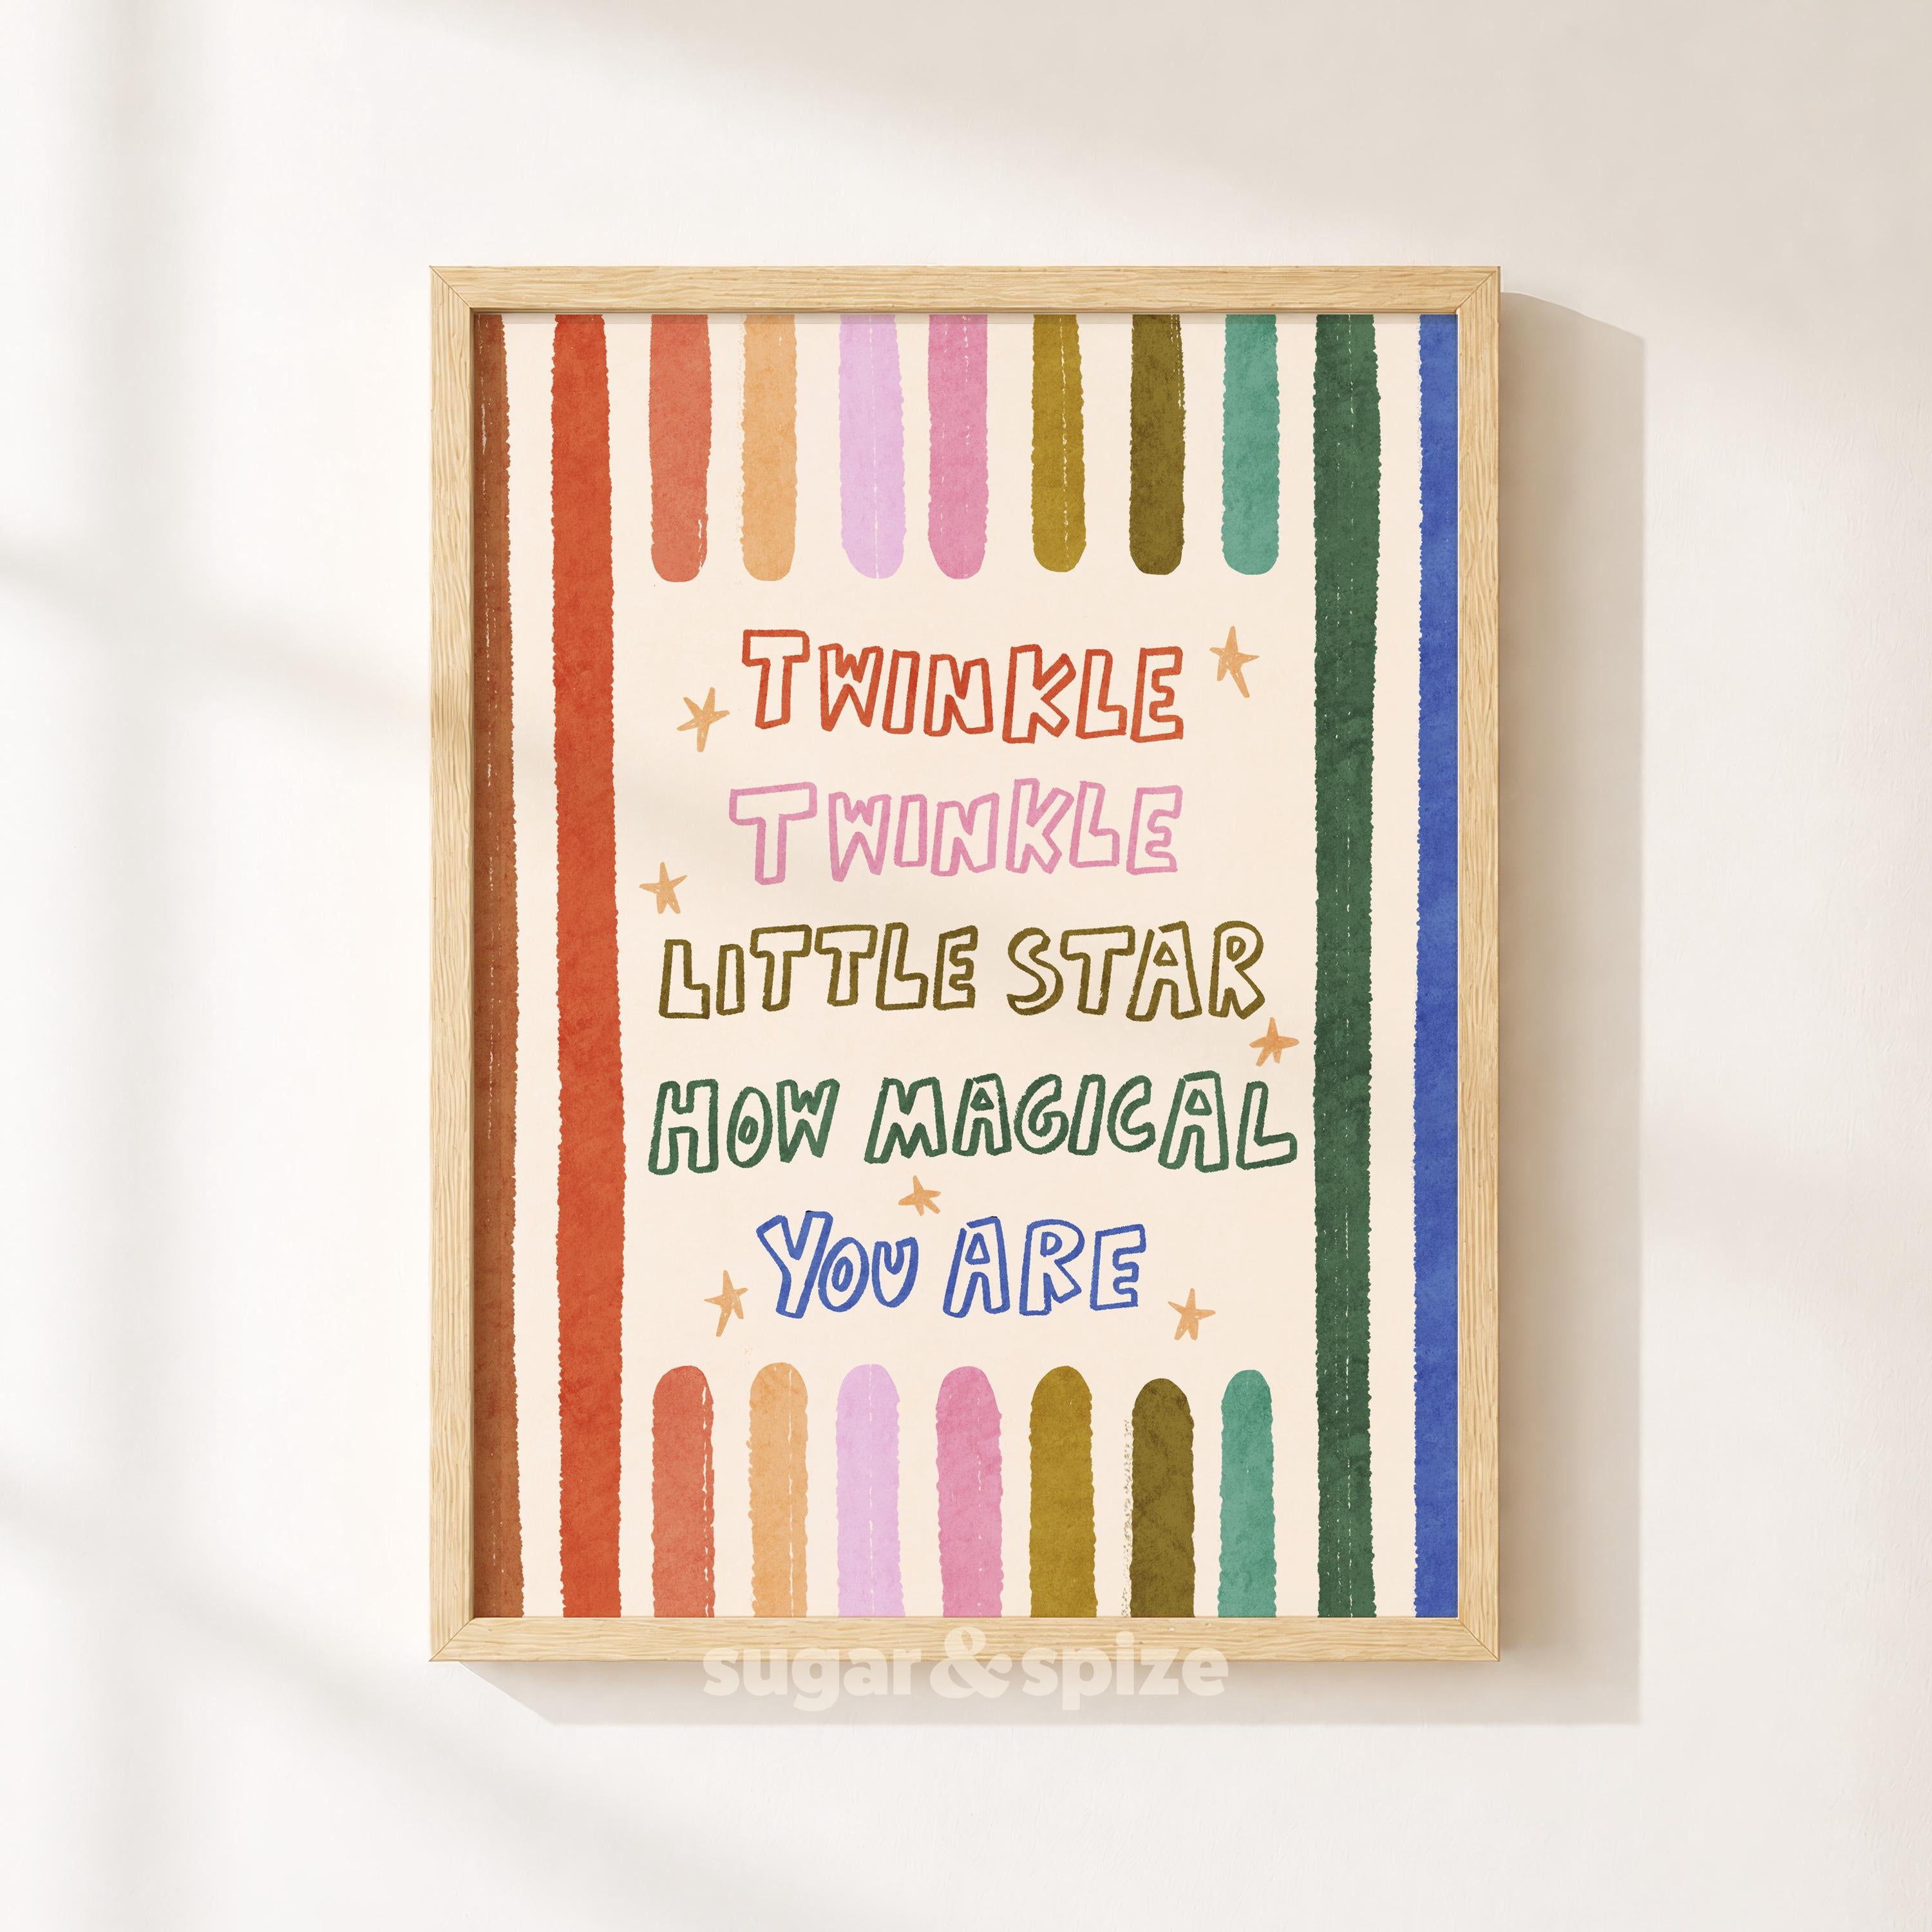 TWINKLE
TWINKLE
LITTLE STAR
HOW MAGICAL
YOU ARE
sugar&spize